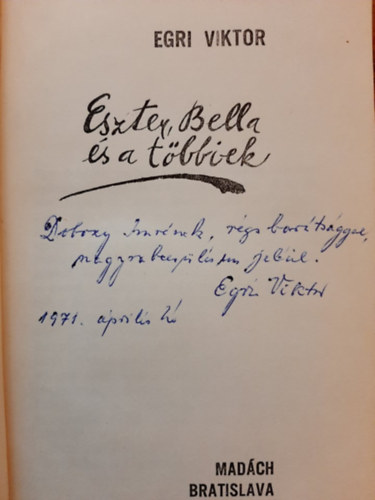 EGRI VIKTOR
Eszter, Bella
és a többiek
Dobozy Imrének, régi barátsággal,
nagyrabecsülésem jeléül.
Egri Viktor
1971. április hó
MADÁCH
BRATISLAVA